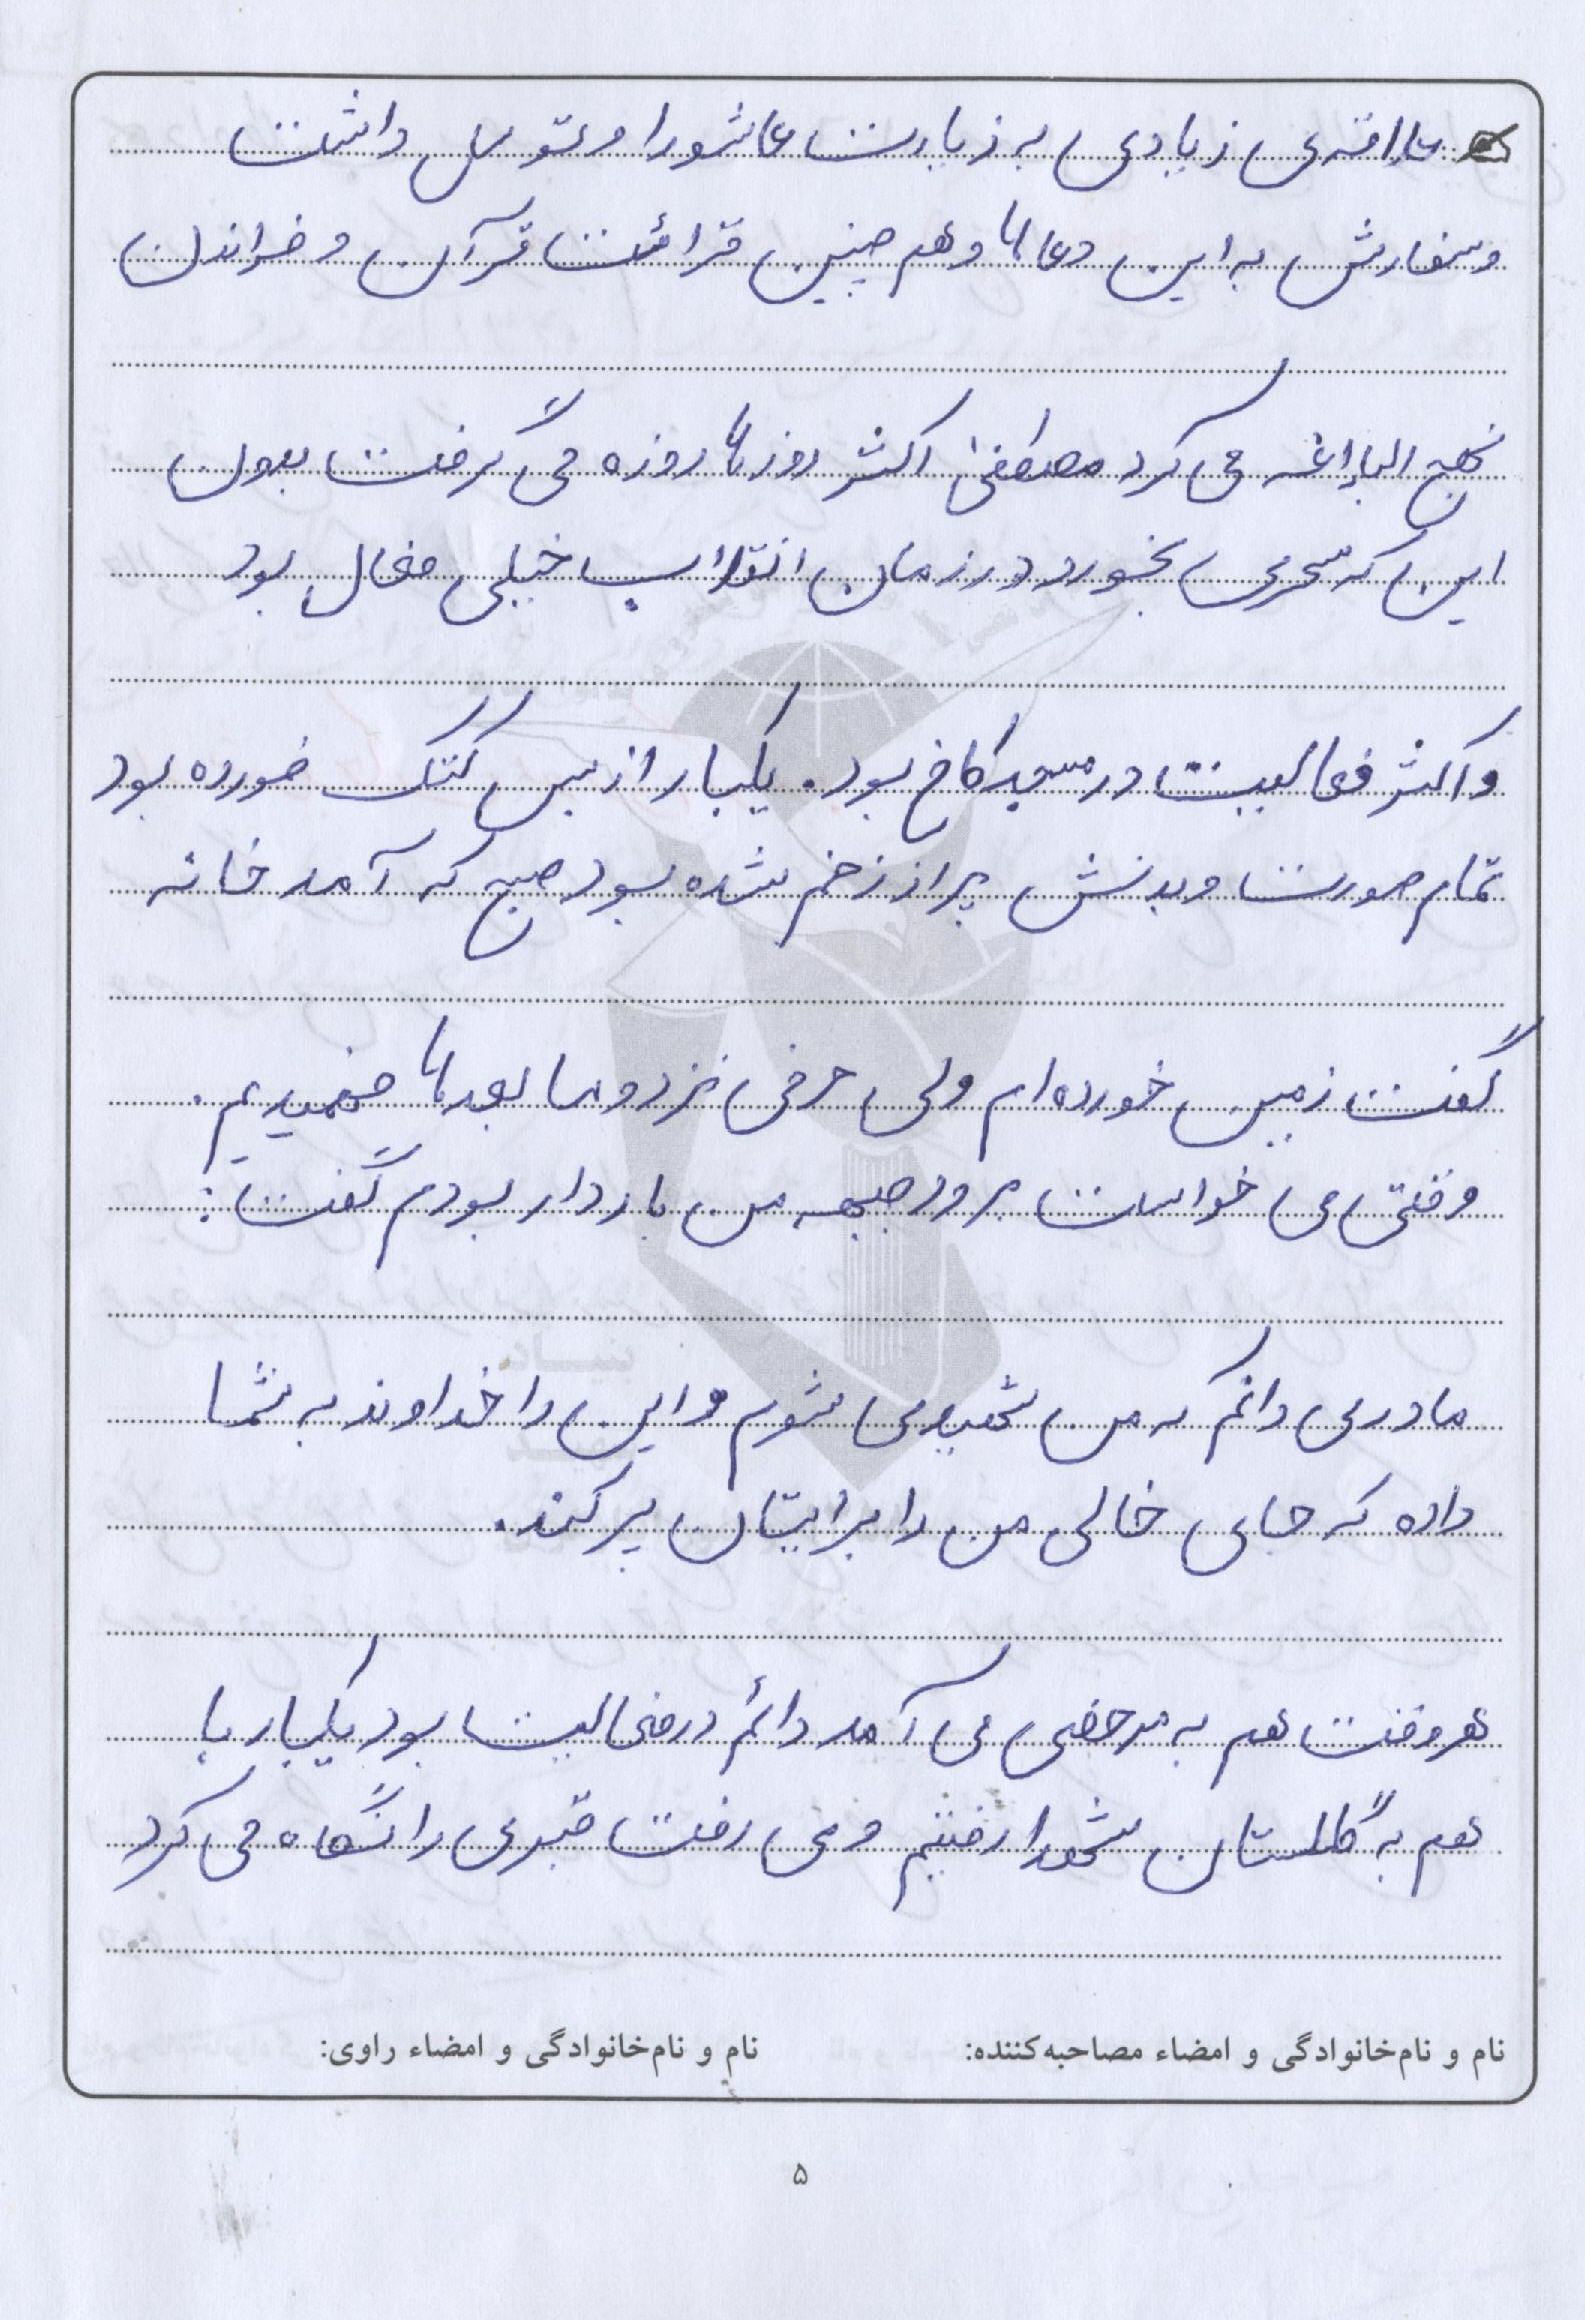 علاقه‌ی زیادی به زیارت عاشورا و توسل داشت
و سفارش به این دعاها و هم چنین قرائت قرآن و خواندن
نهج البلاغه می کرد مصطفی اکثر روزها روزه می گرفت بدون
این که سحری بخورد در زمان انقلاب خیلی فعال بود
و اکثر فعالیت در مسجد کاخ بود. یکبار از بس کتک خورده بود
تمام صورت و بدنش پر از زخم شده بود صبح که آمد خانه
گفت زمین خورده ام ولی حرفی نزد و ما بعدها فهمیدیم.
وقتی می خواست برود جبهه من باردار بودم گفت:
مادر می دانم که من شهید می شوم و این را خداوند به شما
داده که جای خالی من را برایتان پر کند.
هر وقت هم به مرخصی می آمد دائم در فعالیت بود یکبار با
هم به گلستان شهدا رفتیم و می رفت قبری را نگاه می کرد
نام و نام‌خانوادگی و امضاء مصاحبه‌کننده: نام و نام‌خانوادگی و امضاء راوی:
۵